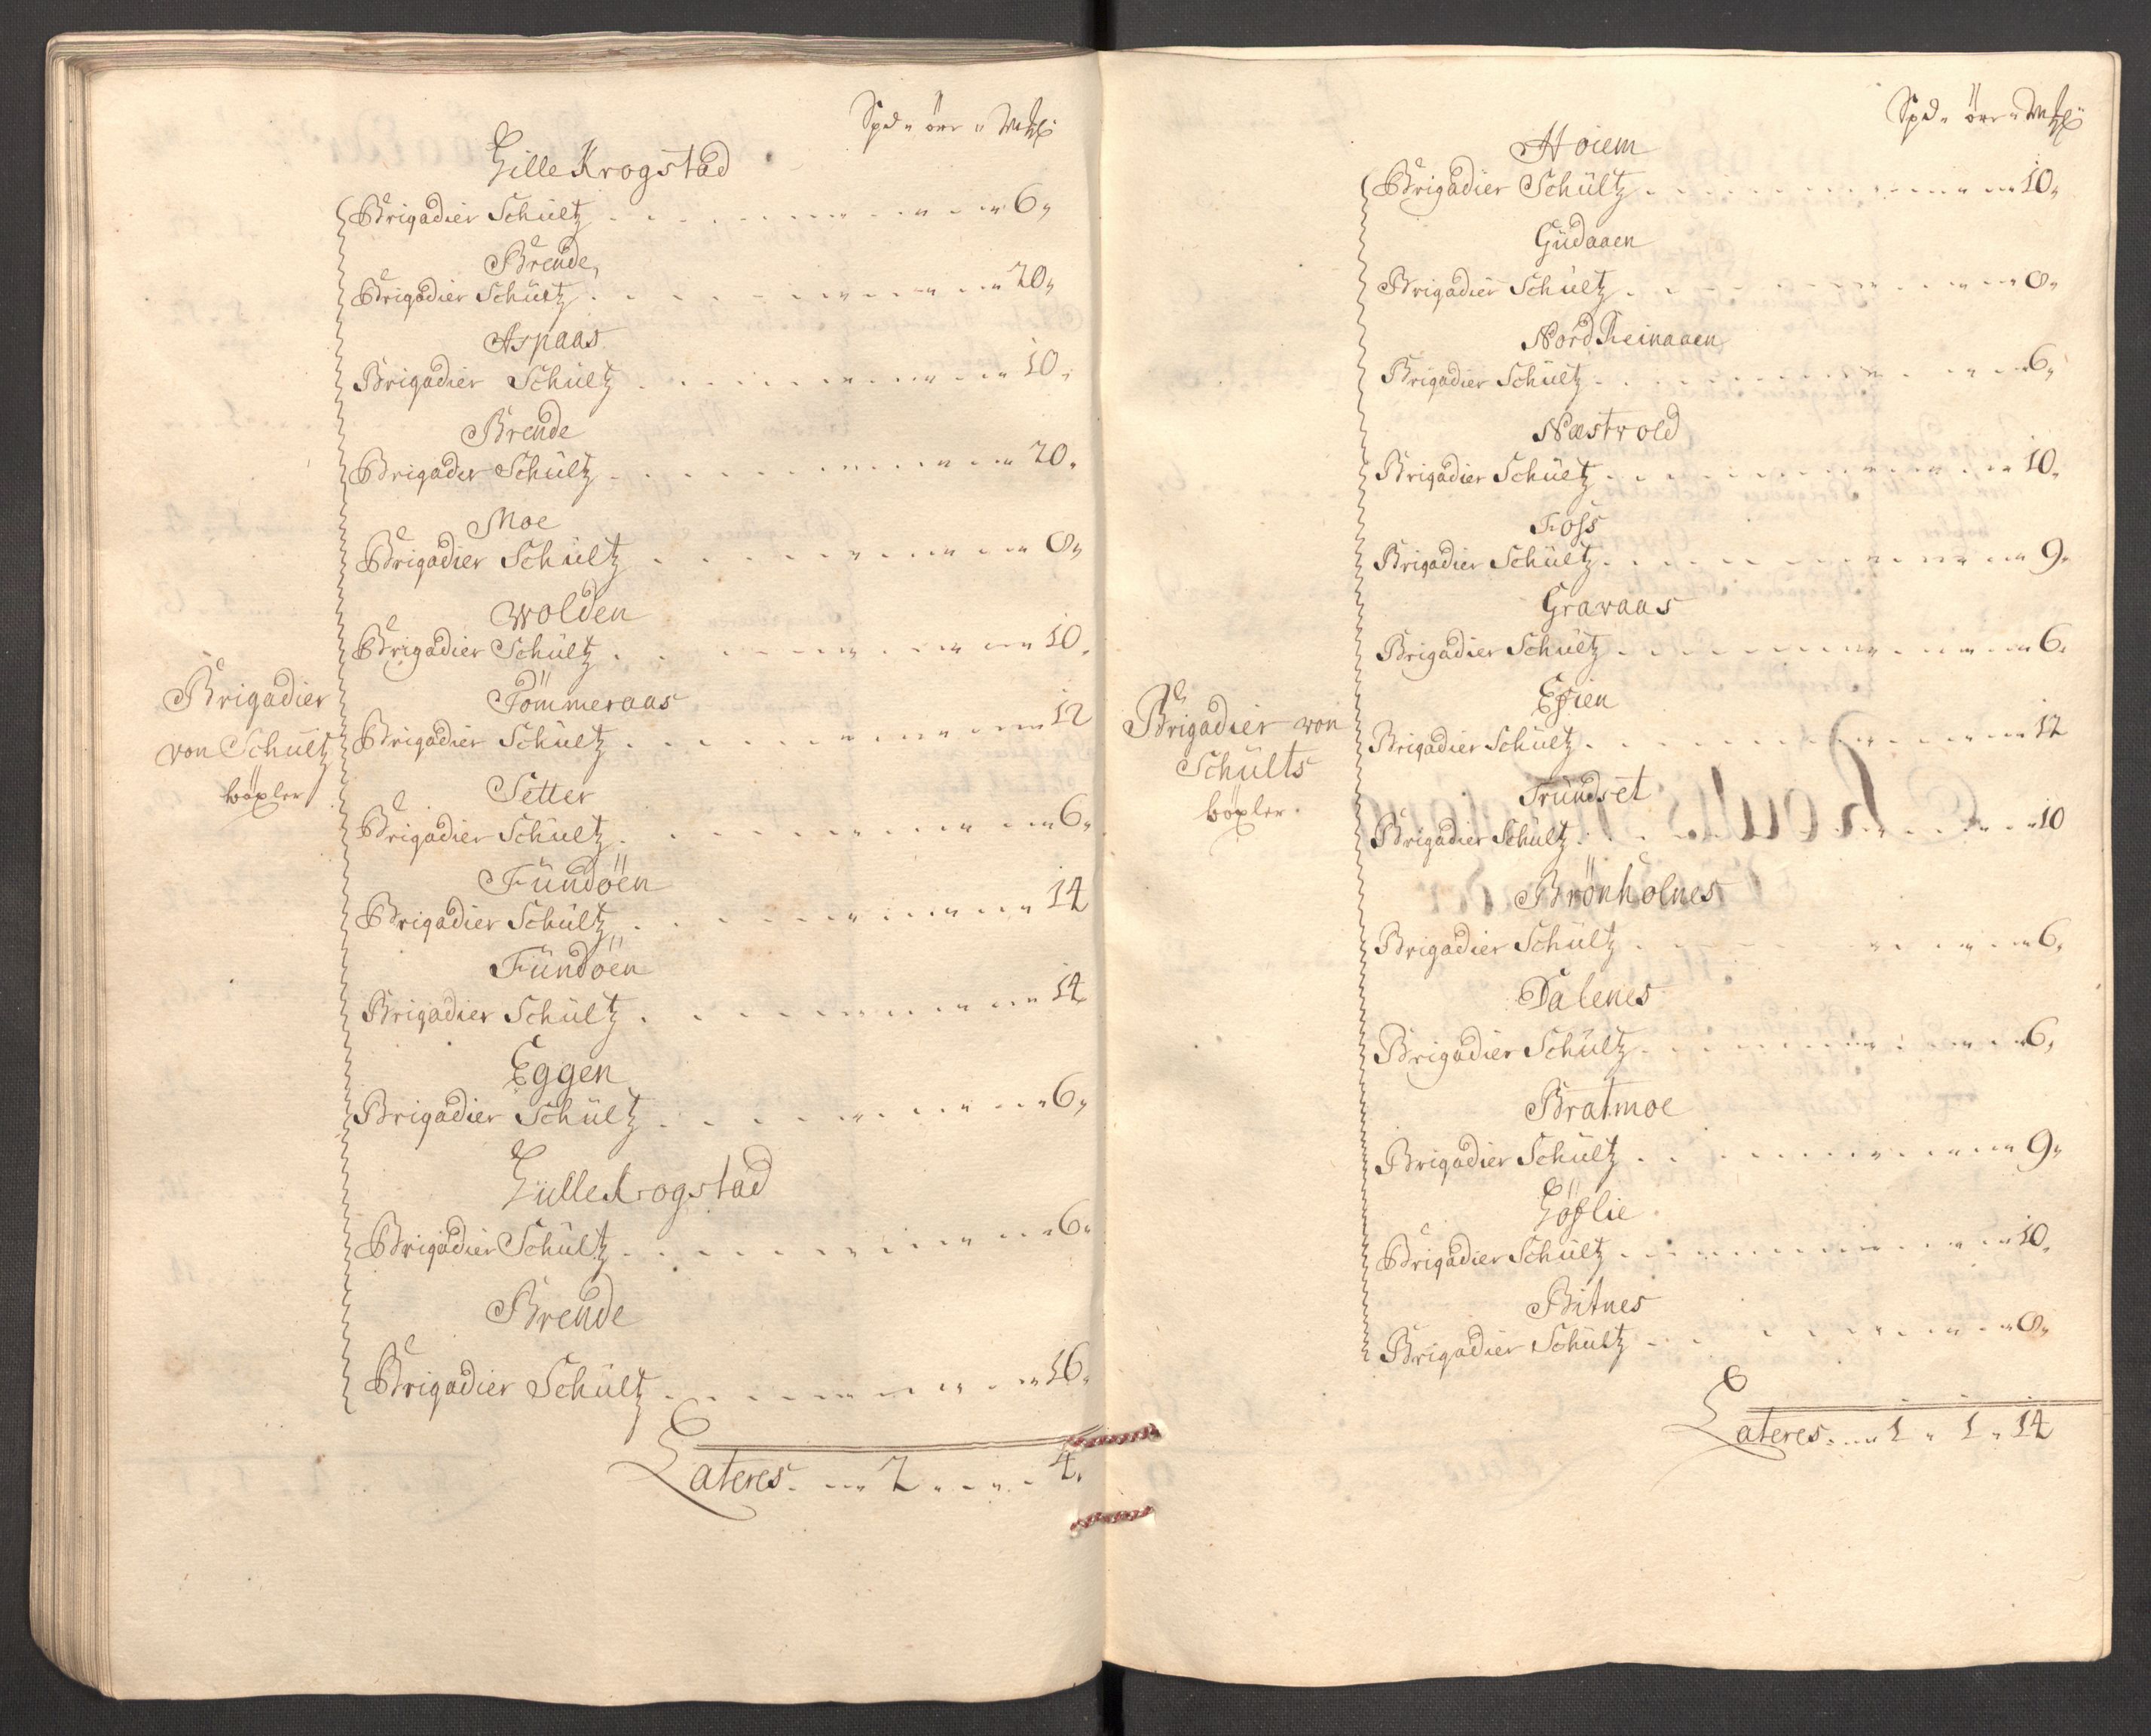 Spd " öre " Mkl
Lille Krogstad
Brigadier Schültz 6
Brende
Brigadier Schültz 20
Aspaas
Brigadier Schültz 10
Brende
Brigader Schültz 20
Moe
Brigadier Schültz 8
Wolden
Brigadier Schültz 10
Tömmeraas
Brigadier Schültz 12
Setter
Brigadier Schültz 6
Fündöen
Brigadier Schültz 14
Fündöen
Brigadier Schültz 14
Eggen
Brigadier Schültz 6
Lille Krogstad
Brigadier Schültz 6
Brende
Brigadier Schültz 16
Brigadier
von Schültz
böxler
Lateres 2 " 4
Spd " öre " Mkl
Höiem
Brigadier Schültz 10
Güdaaen
Brigadier Schültz 8
Nord Reinaaen
Brigadier Schültz 6
Næstvold
Brigadier Schültz 10
Foss
Brigadier Schültz 9
Gravaas
Brigadier Schültz 6
Brigadier Schültz 12
Tründset
Brigadier Schültz 10
Brönholnes
Brigadier Schültz 6
Dalenes
Brigadier Schültz 6
Bratmoe
Brigadier Schültz 9
Brigadier Schültz 10
Bitnes
Brigadier Schültz 8
Brigadier von
Schülts
böxler
Lateres 1 " 1 " 14